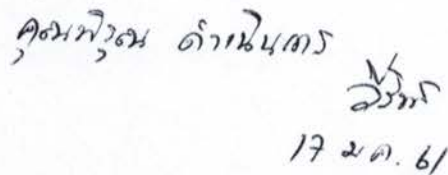 คุณพิรุณ ดำเนินการ
17 มค. 61